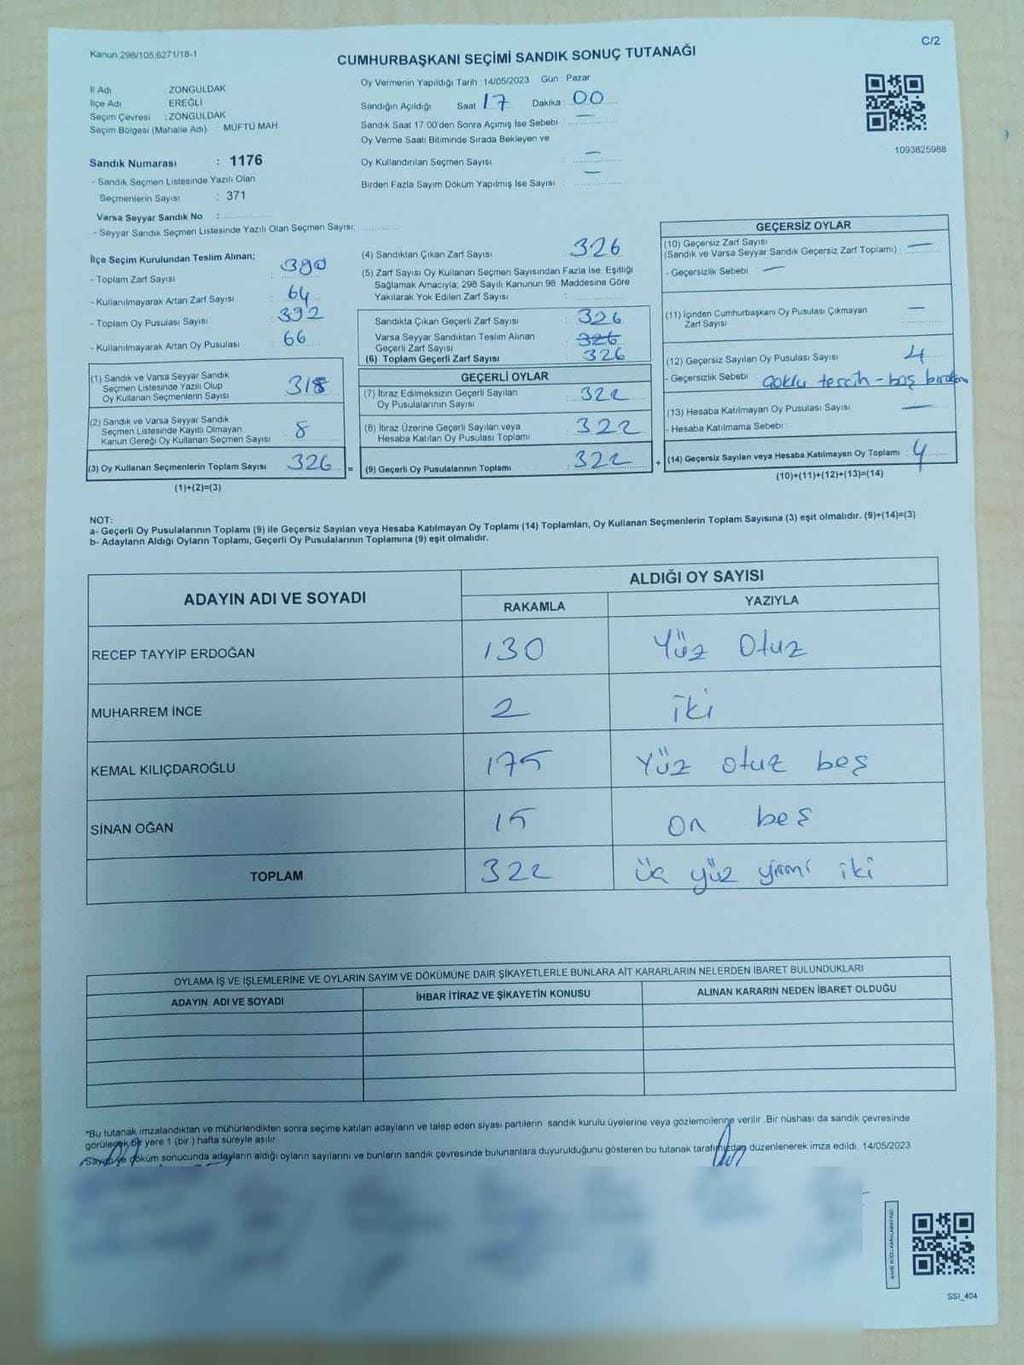 Kanun 298/105,6271/18-1
C/2
CUMHURBAŞKANI SEÇİMİ SANDIK SONUÇ TUTANAĞI
İl Adı : ZONGULDAK
İlçe Adı : EREĞLİ
Seçim Çevresi : ZONGULDAK
Seçim Bölgesi (Mahalle Adı) MÜFTÜ MAH.
Sandık Numarası : 1176
- Sandık Seçmen Listesinde Yazılı Olan
Seçmenlerin Sayısı : 371
Varsa Seyyar Sandık No :
- Seyyar Sandık Seçmen Listesinde Yazılı Olan Seçmen Sayısı:
Oy Vermenin Yapıldığı Tarih : 14/05/2023 Gün : Pazar
Sandığın Açıldığı Saat 17 Dakika : 00
Sandık Saat 17:00'den Sonra Açımış İse Sebebi : —
Oy Verme Saati Bitiminde Sırada Bekleyen ve
Oy Kullandırılan Seçmen Sayısı : —
Birden Fazla Sayım Döküm Yapılmış İse Sayısı : —
1093825988
İlçe Seçim Kurulundan Teslim Alınan;
- Toplam Zarf Sayısı 390
- Kullanılmayarak Artan Zarf Sayısı 64
- Toplam Oy Pusulası Sayısı 392
- Kullanılmayarak Artan Oy Pusulası 66
(1) Sandık ve Varsa Seyyar Sandık
Seçmen Listesinde Yazılı Olup
Oy Kullanan Seçmenlerin Sayısı 318
(2) Sandık ve Varsa Seyyar Sandık
Seçmen Listesinde Kayıtlı Olmayan
Kanun Gereği Oy Kullanan Seçmen Sayısı 8
(3) Oy Kullanan Seçmenlerin Toplam Sayısı 326 =
(1)+(2)=(3)
(4) Sandıktan Çıkan Zarf Sayısı 326
(5) Zarf Sayısı Oy Kullanan Seçmen Sayısından Fazla İse, Eşitliği
Sağlamak Amacıyla; 298 Sayılı Kanunun 98. Maddesine Göre
Yakılarak Yok Edilen Zarf Sayısı :
Sandıkta Çıkan Geçerli Zarf Sayısı : 326
Varsa Seyyar Sandıktan Teslim Alınan
Geçerli Zarf Sayısı : 326
(6) Toplam Geçerli Zarf Sayısı 326
GEÇERLİ OYLAR
(7) İtiraz Edilmeksizin Geçerli Sayılan
Oy Pusulalarının Sayısı : 322
(8) İtiraz Üzerine Geçerli Sayılan veya
Hesaba Katılan Oy Pusulası Toplamı : 322
(9) Geçerli Oy Pusulalarının Toplamı : 322 +
GEÇERSİZ OYLAR
(10) Geçersiz Zarf Sayısı
(Sandık ve Varsa Seyyar Sandık Geçersiz Zarf Toplamı) : —
- Geçersizlik Sebebi : —
(11) İçinden Cumhurbaşkanı Oy Pusulası Çıkmayan
Zarf Sayısı : —
(12) Geçersiz Sayılan Oy Pusulası Sayısı : 4
- Geçersizlik Sebebi : Çoklu tercih - boş bırakma
(13) Hesaba Katılmayan Oy Pusulası Sayısı : —
- Hesaba Katılmama Sebebi :
(14) Geçersiz Sayılan veya Hesaba Katılmayan Oy Toplamı : 4
(10)+(11)+(12)+(13)=(14)
NOT:
a- Geçerli Oy Pusulalarının Toplamı (9) ile Geçersiz Sayılan veya Hesaba Katılmayan Oy Toplamı (14) Toplamları, Oy Kullanan Seçmenlerin Toplam Sayısına (3) eşit olmalıdır. (9)+(14)=(3)
b- Adayların Aldığı Oyların Toplamı, Geçerli Oy Pusulalarının Toplamına (9) eşit olmalıdır.
ADAYIN ADI VE SOYADI
ALDIĞI OY SAYISI
RAKAMLA YAZIYLA
RECEP TAYYİP ERDOĞAN 130 Yüz Otuz
MUHARREM İNCE 2 iki
KEMAL KILIÇDAROĞLU 175 Yüz otuz beş
SİNAN OĞAN 15 on beş
TOPLAM 322 üç yüz yirmi iki
OYLAMA İŞ VE İŞLEMLERİNE VE OYLARIN SAYIM VE DÖKÜMÜNE DAİR ŞİKAYETLERLE BUNLARA AİT KARARLARIN NELERDEN İBARET BULUNDUKLARI
ADAYIN ADI VE SOYADI İHBAR İTİRAZ VE ŞİKAYETİN KONUSU ALINAN KARARIN NEDEN İBARET OLDUĞU
"Bu tutanak imzalandıktan ve mühürlendikten sonra seçime katılan adayların ve talep eden siyasi partilerin sandık kurulu üyelerine veya gözlemcilerine verilir. Bir nüshası da sandık çevresinde
görülecek bir yere 1 (bir) hafta süreyle asılır.
Sayım ve döküm sonucunda adayların aldığı oyların sayılarını ve bunların sandık çevresinde bulunanlara duyurulduğunu gösteren bu tutanak tarafımızdan düzenlenerek imza edildi. 14/05/2023
SSI_404